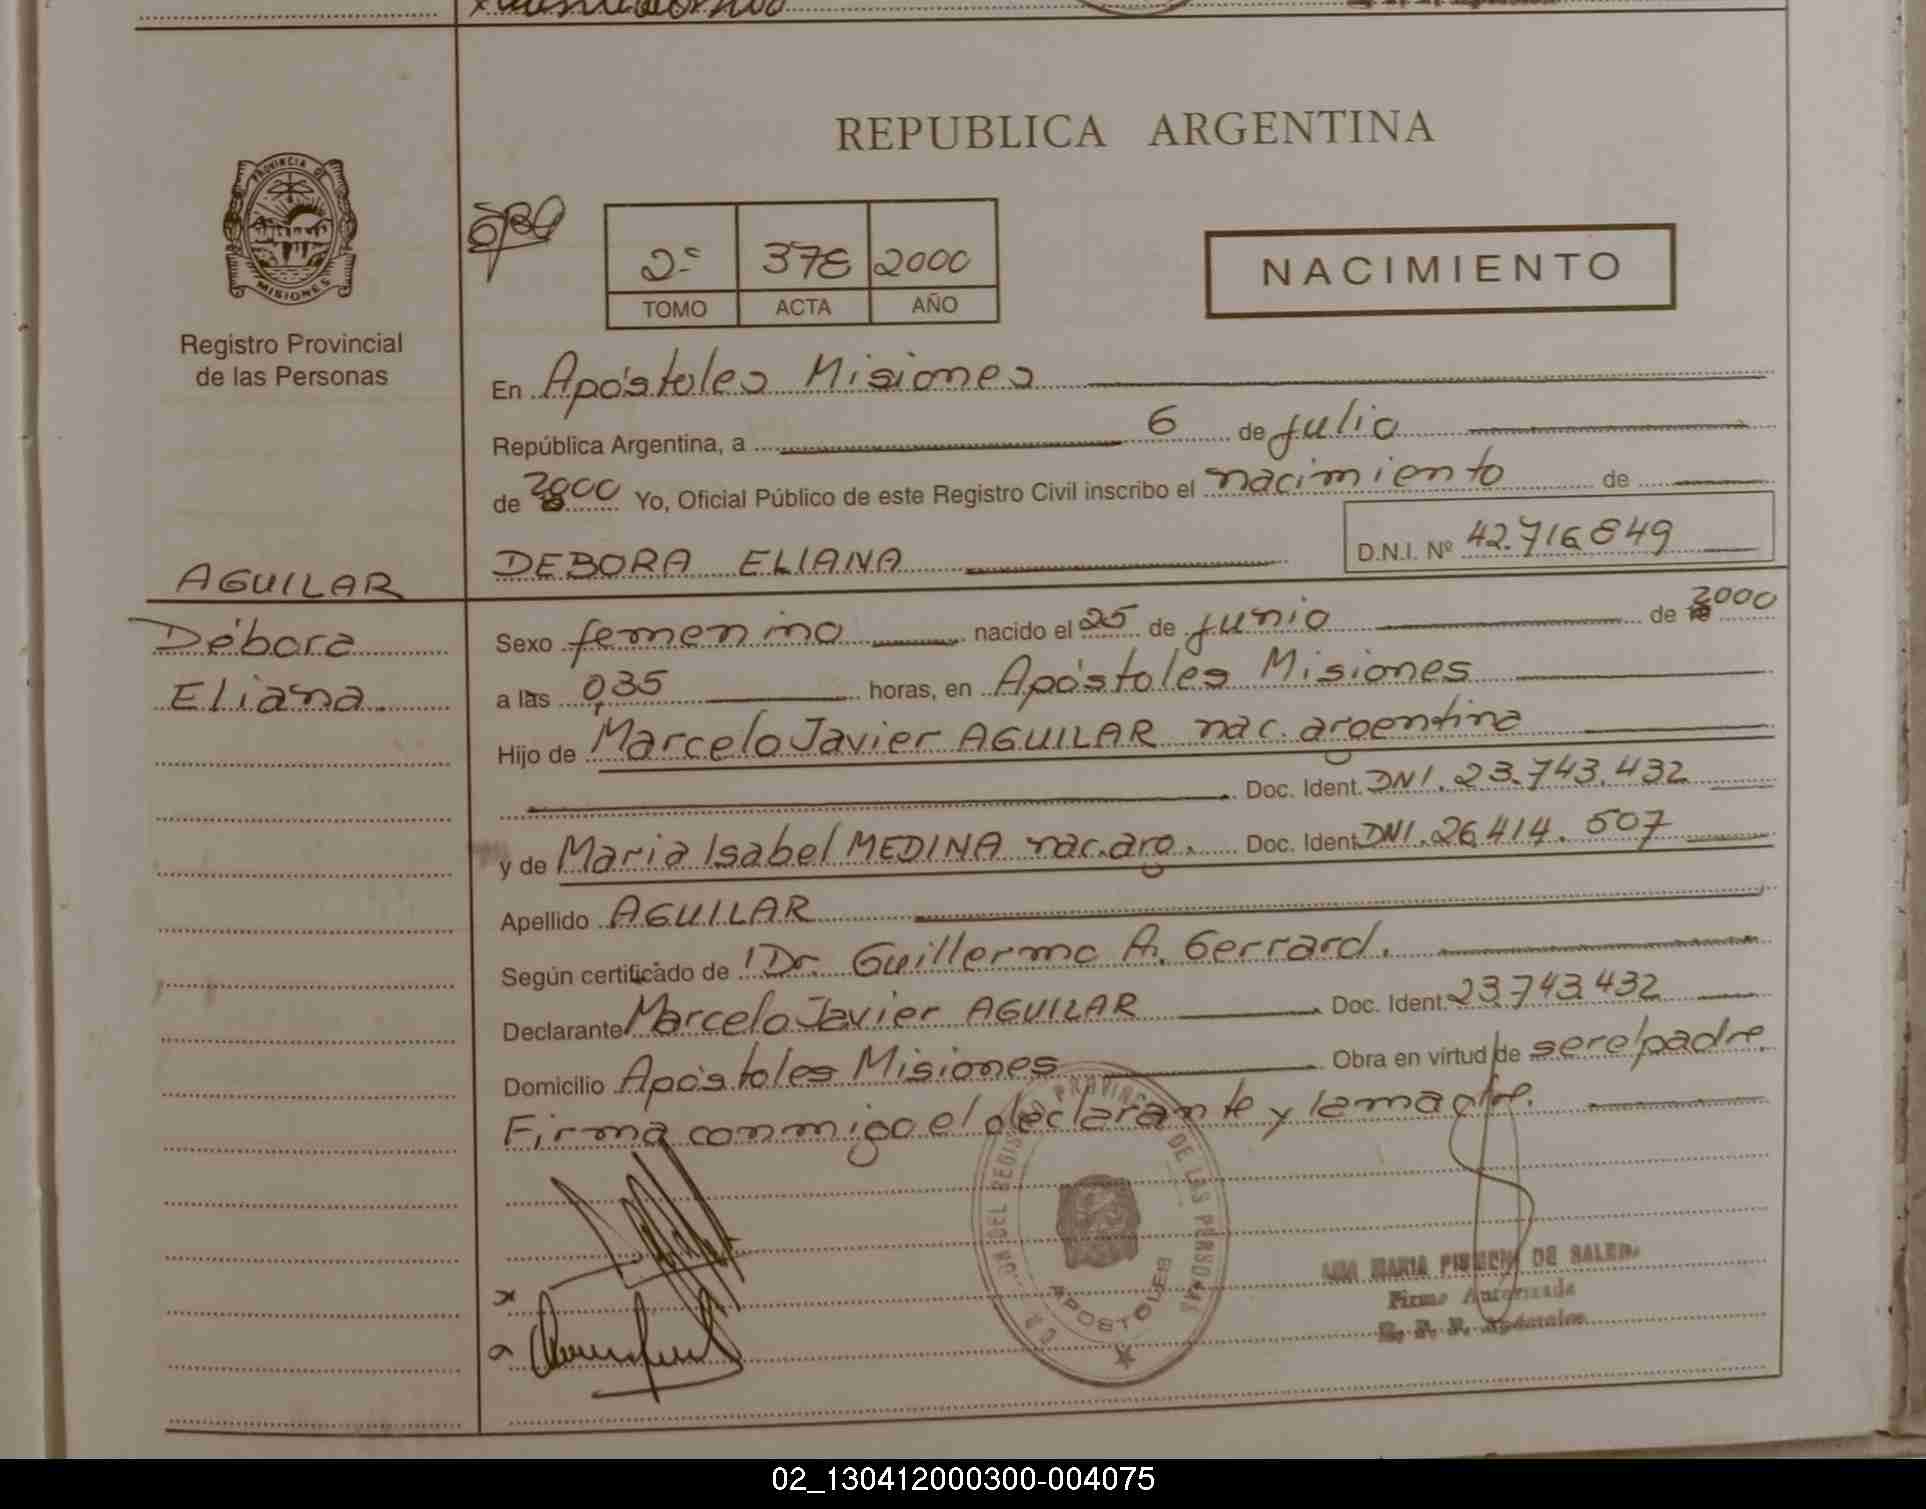 PROVINCIA DE
MISIONES
Registro Provincial
de las Personas
REPUBLICA ARGENTINA
2º 378 2000
TOMO ACTA AÑO
NACIMIENTO
En Apóstoles Misiones
República Argentina, a 6 de julio
de 2000 Yo, Oficial Público de este Registro Civil inscribo el nacimiento de
DEBORA ELIANA D.N.I. Nº 42.716.849
AGUILAR
Débora
Eliana
Sexo femenino nacido el 25 de junio de 2000
a las 0,35 horas, en Apóstoles Misiones
Hijo de Marcelo Javier AGUILAR nac. argentina
Doc. Ident. DNI. 23.743.432
y de Maria Isabel MEDINA nac. arg. Doc. Ident. DNI. 26.414.507
Apellido AGUILAR
Según certificado de Dr. Guillermo A. Gerrard.
Declarante Marcelo Javier AGUILAR Doc. Ident. 23.743.432
Domicilio Apóstoles Misiones Obra en virtud de ser el padre
Firma conmigo el declarante y la madre.
DEL REGISTRO PROVINCIAL DE LAS PERSONAS
APOSTOLES
MARIA DE
Firma Autorizada
R. P. P. Apóstoles
02_130412000300-004075